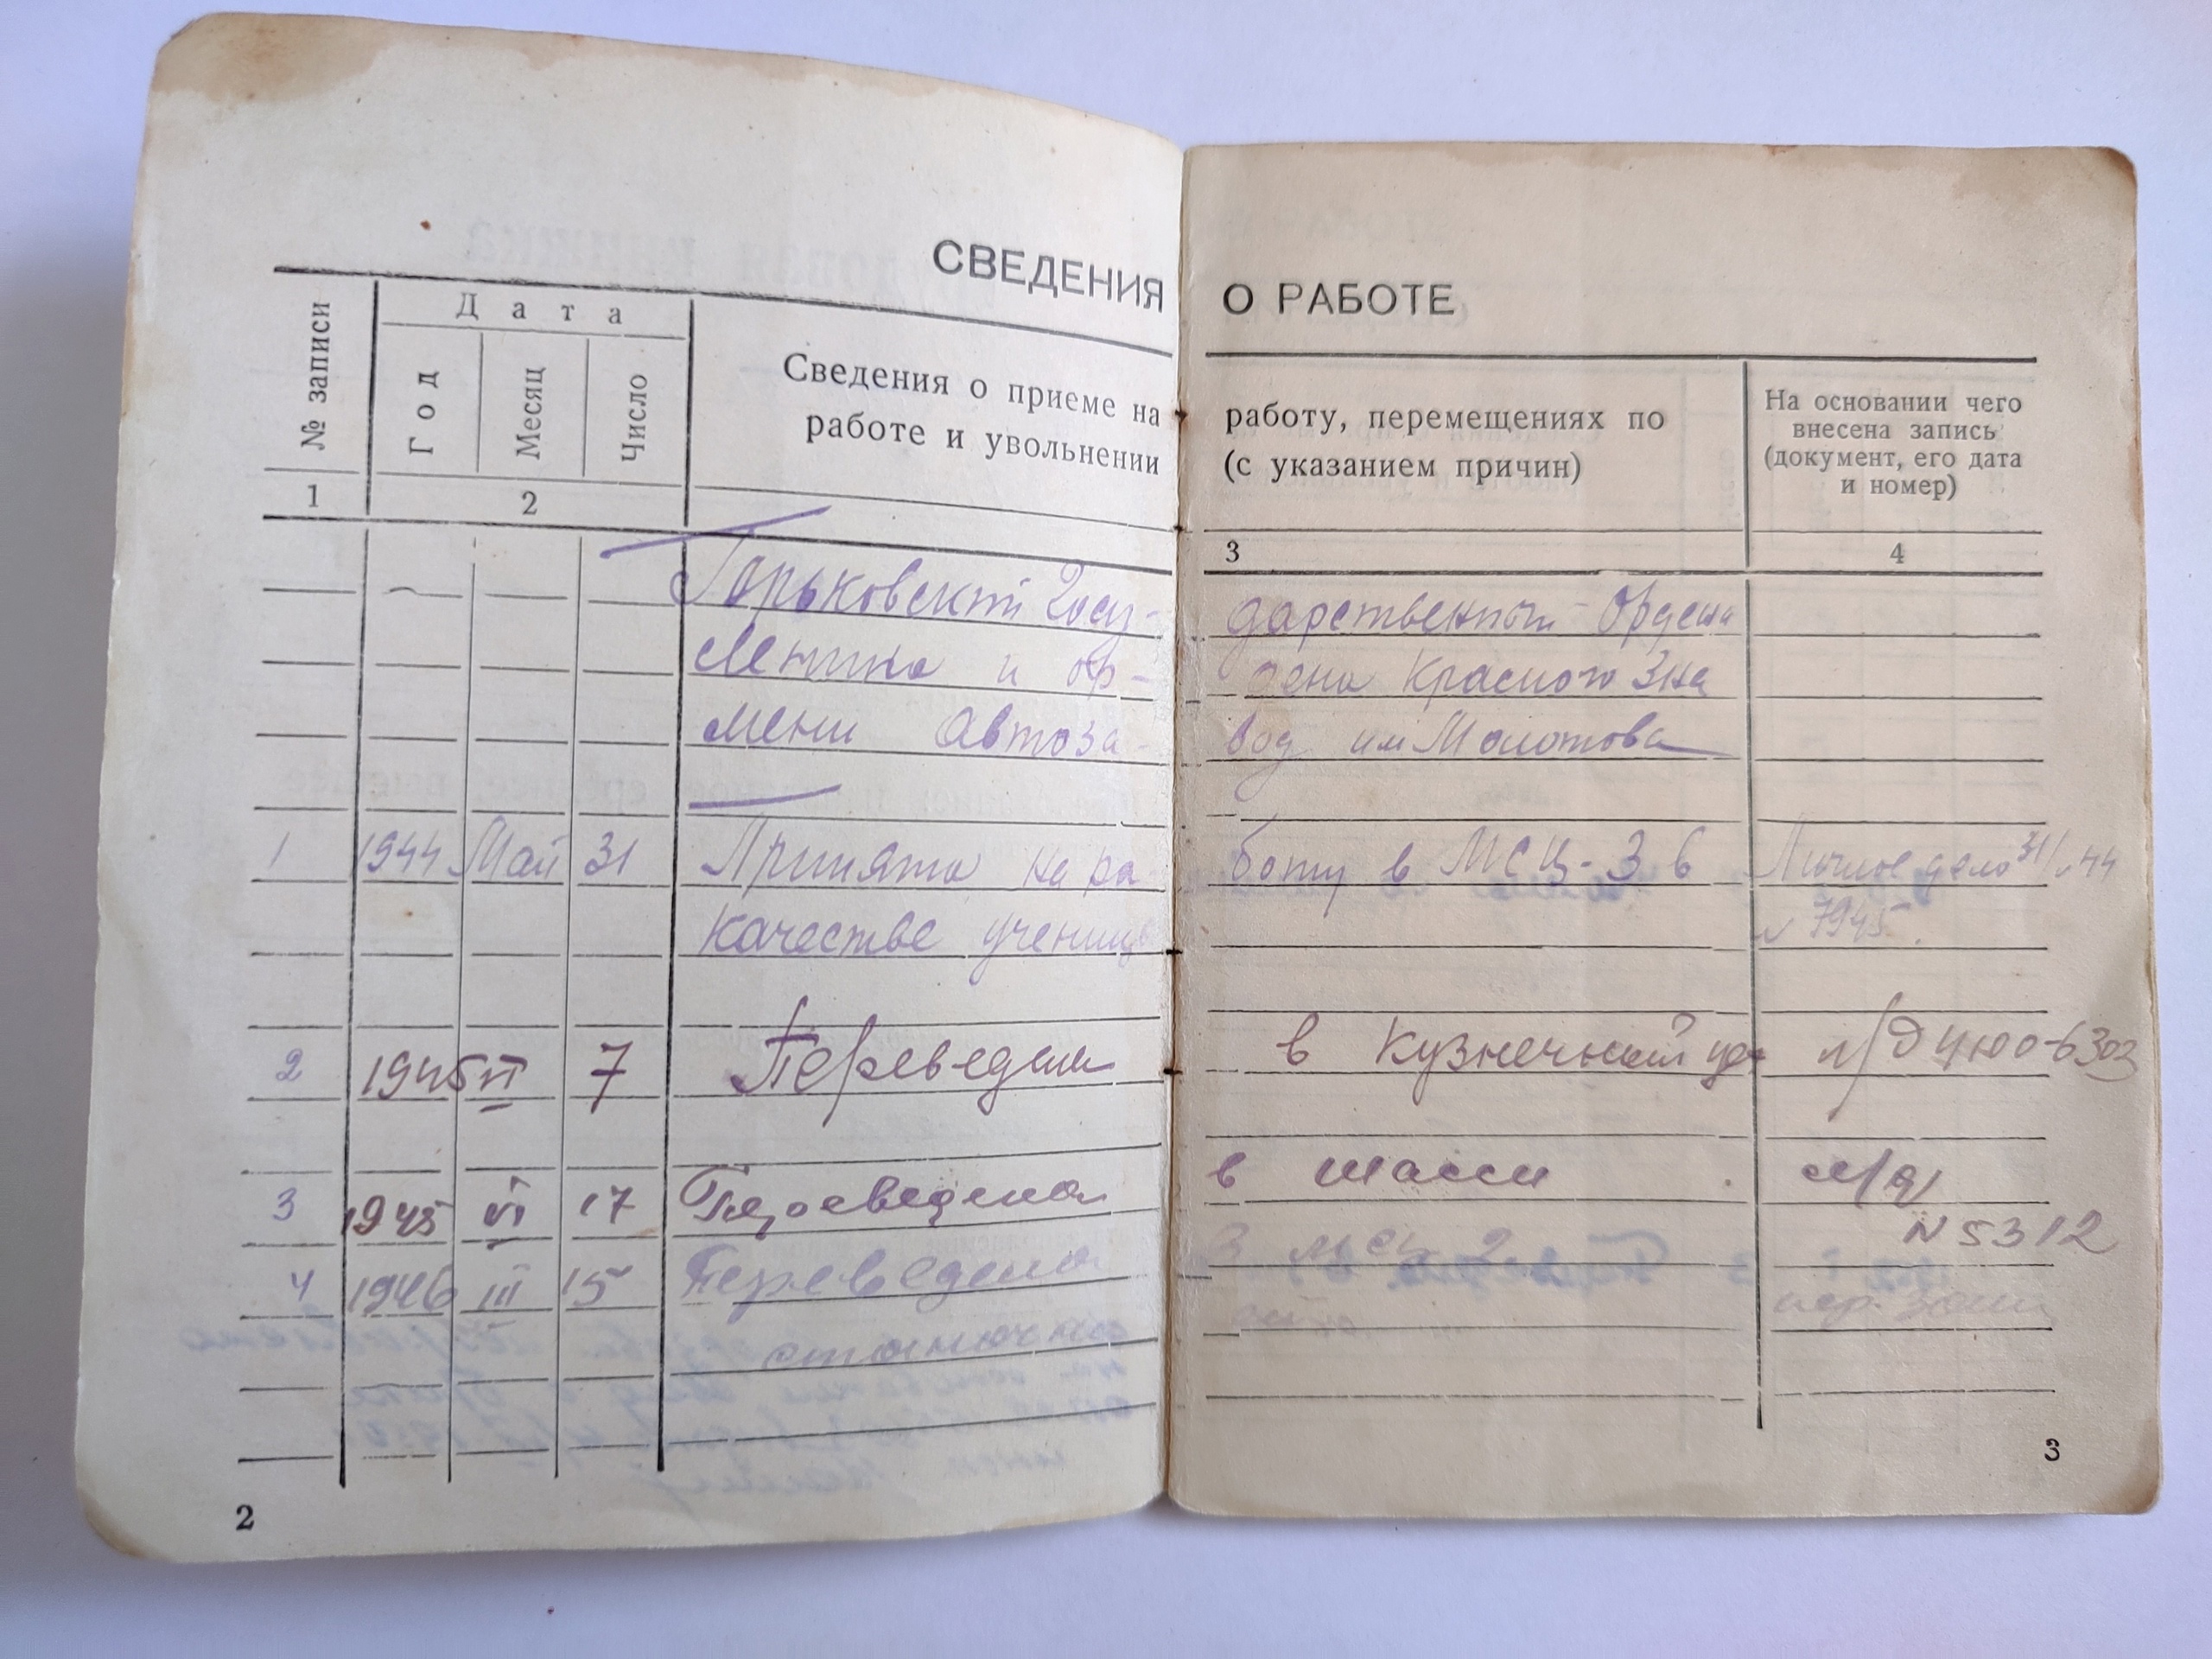 СВЕДЕНИЯ О РАБОТЕ
№ записи
Дата
Год
Месяц
Число
Сведения о приеме на работу, перемещениях по
работе и увольнении (с указанием причин)
На основании чего
внесена запись
(документ, его дата
и номер)
1 2 3 4
Горьковский Госу- дарственный Ордена
Ленина и ор- дена Красного Зна
мени Автоза- вод им Молотова
1 1944 Май 31 Принята на ра боту в МСЦ-3 в Личное дело 31/V 44
качестве учениц N 7945.
2 1945 VI 7 Переведена в Кузнечный цех 6303
3 1945 VI 17 Переведена в шасси
N 5312
4 1946 III 15 Переведена в мсц 2
станочни
2
3